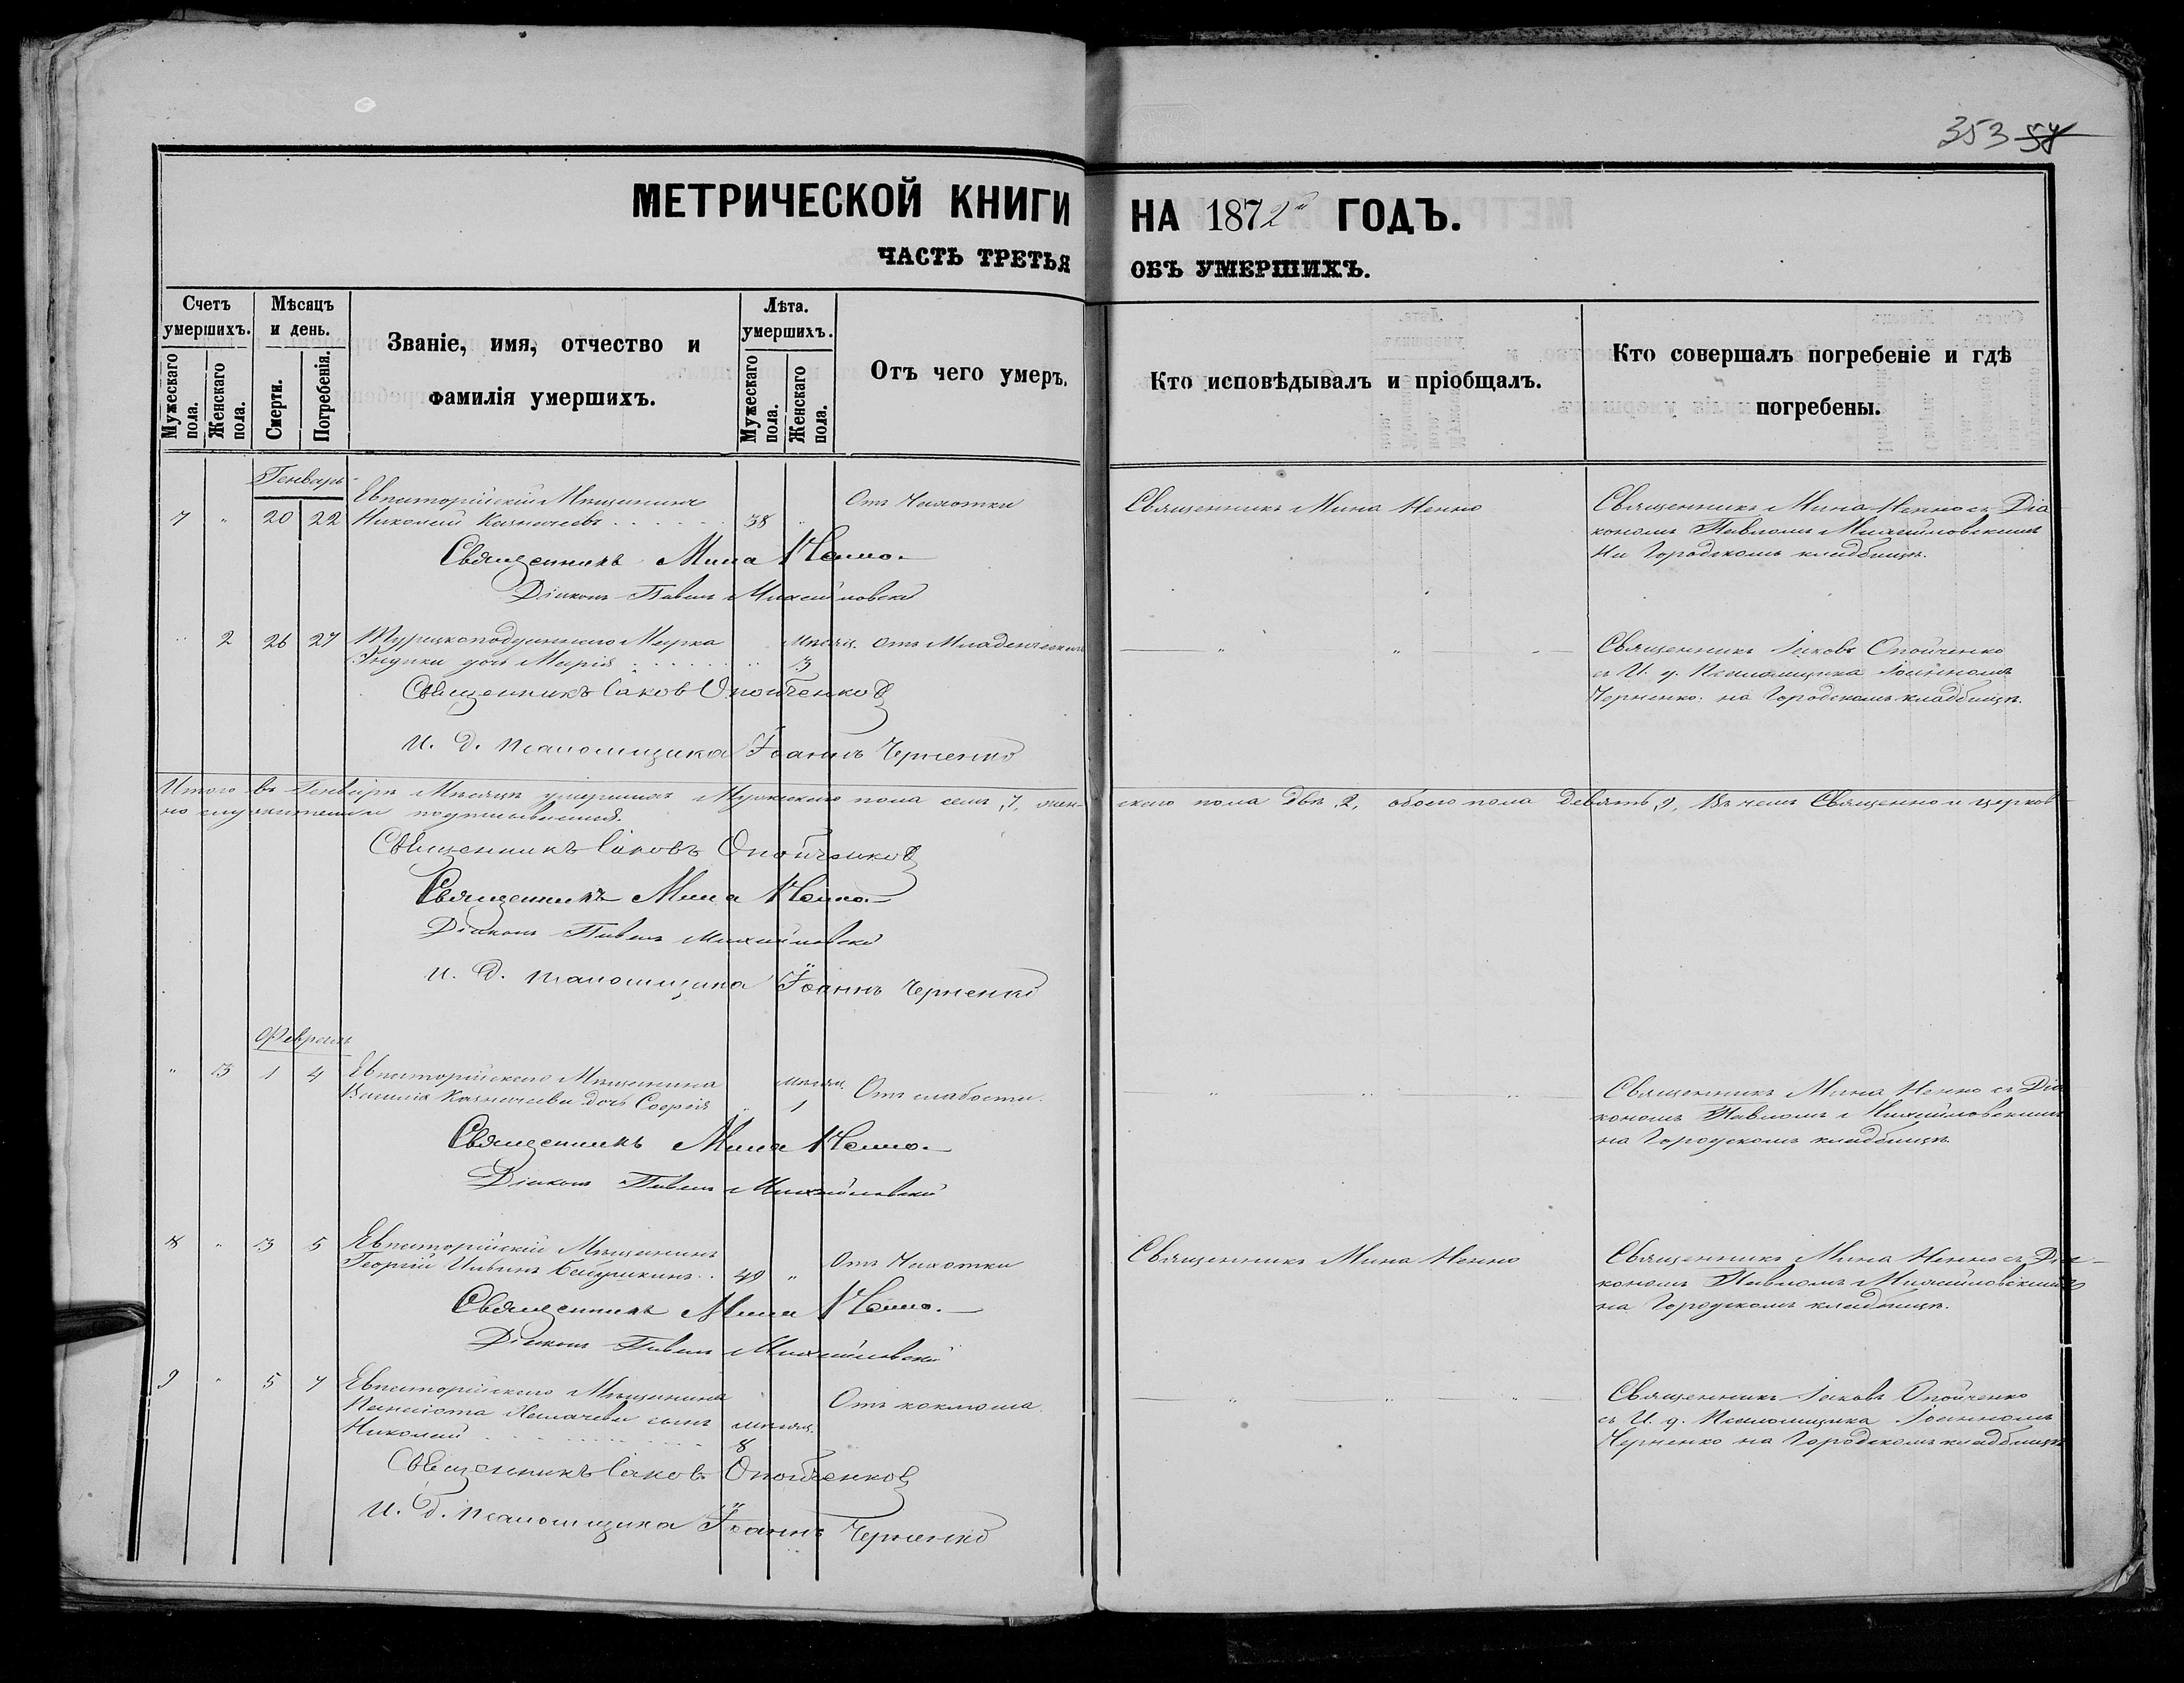 353 54
МЕТРИЧЕСКОЙ КНИГИ НА 1872й ГОДЪ.
ЧАСТЬ ТРЕТЬЯ ОБЪ УМЕРШИХЪ.
Счетъ умершихъ.
Мужескаго пола.
Женскаго пола.
Мѣсяцъ и день.
Смерти.
Погребенія.
Званіе, имя, отчество и
фамилія умершихъ.
Лѣта. умершихъ.
Мужескаго пола.
Женскаго пола.
Отъ чего умеръ.
Кто исповѣдывалъ и пріобщалъ.
Кто совершалъ погребеніе и гдѣ
погребены.
Генварь
Евпаторійскій Мѣщанинъ От Чахотки Священникъ Мина Ненно Священникъ Мина Ненно съ Діа
7 " 20 22 Николай Казначеевъ 38 " кономъ Павломъ Михайловскимъ
на Городскомъ кладбищѣ.
Священникъ Мина Ненно.
Діаконъ Павелъ Михайловскій
" 2 26 27 Турецкоподданнаго Мѣсяц. Отъ Младенческой Священникъ Іаковъ Опойченко
дочь Марія " 3 съ И. д. Псаломщика Іоанномъ
Черненко на Городскомъ кладбищѣ.
Священникъ Іаковъ Опойченко
И. д. псаломщика Іоаннъ Черненко
Итого въ Генварѣ Мѣсяцѣ умершихъ Мужескаго пола семь, 7, жен- скаго пола двѣ, 2, обоего пола девять, 9, Въ чемъ Священно и церков-
но служители подписываемся.
Священникъ Іаковъ Опойченко
Священникъ Мина Ненно.
Діаконъ Павелъ Михайловскій
И. д. псаломщика Іоаннъ Черненко
Февраль
" 3 1 4 Евпаторійскаго Мѣщанина Мѣсяц. Отъ слабости. Священникъ Мина Ненно съ Діа
Василія Казначеева дочь Софія " 1 кономъ Павломъ Михайловскимъ
на Городскомъ кладбищѣ
Священникъ Мина Ненно.
Діаконъ Павелъ Михайловскій
8 " 3 5 Евпаторійскій Мѣщанинъ Отъ Чахотки Священникъ Мина Ненно Священникъ Мина Ненно съ Діа-
Георгій Ивановъ 40 " кономъ Павломъ Михайловскимъ
на Городскомъ кладбищѣ.
Священникъ Мина Ненно.
Діаконъ Павелъ Михайловскій
9 " 5 7 Евпаторійскаго Мѣщанина Отъ коклюша. Священникъ Іаковъ Опойченко
сынъ мѣсяц. съ И. д. Псаломщика Іоанномъ
Николай 8 Черненко на Городскомъ кладбищѣ
Священникъ Іаковъ Опойченко
И. д. псаломщика Іоаннъ Черненко